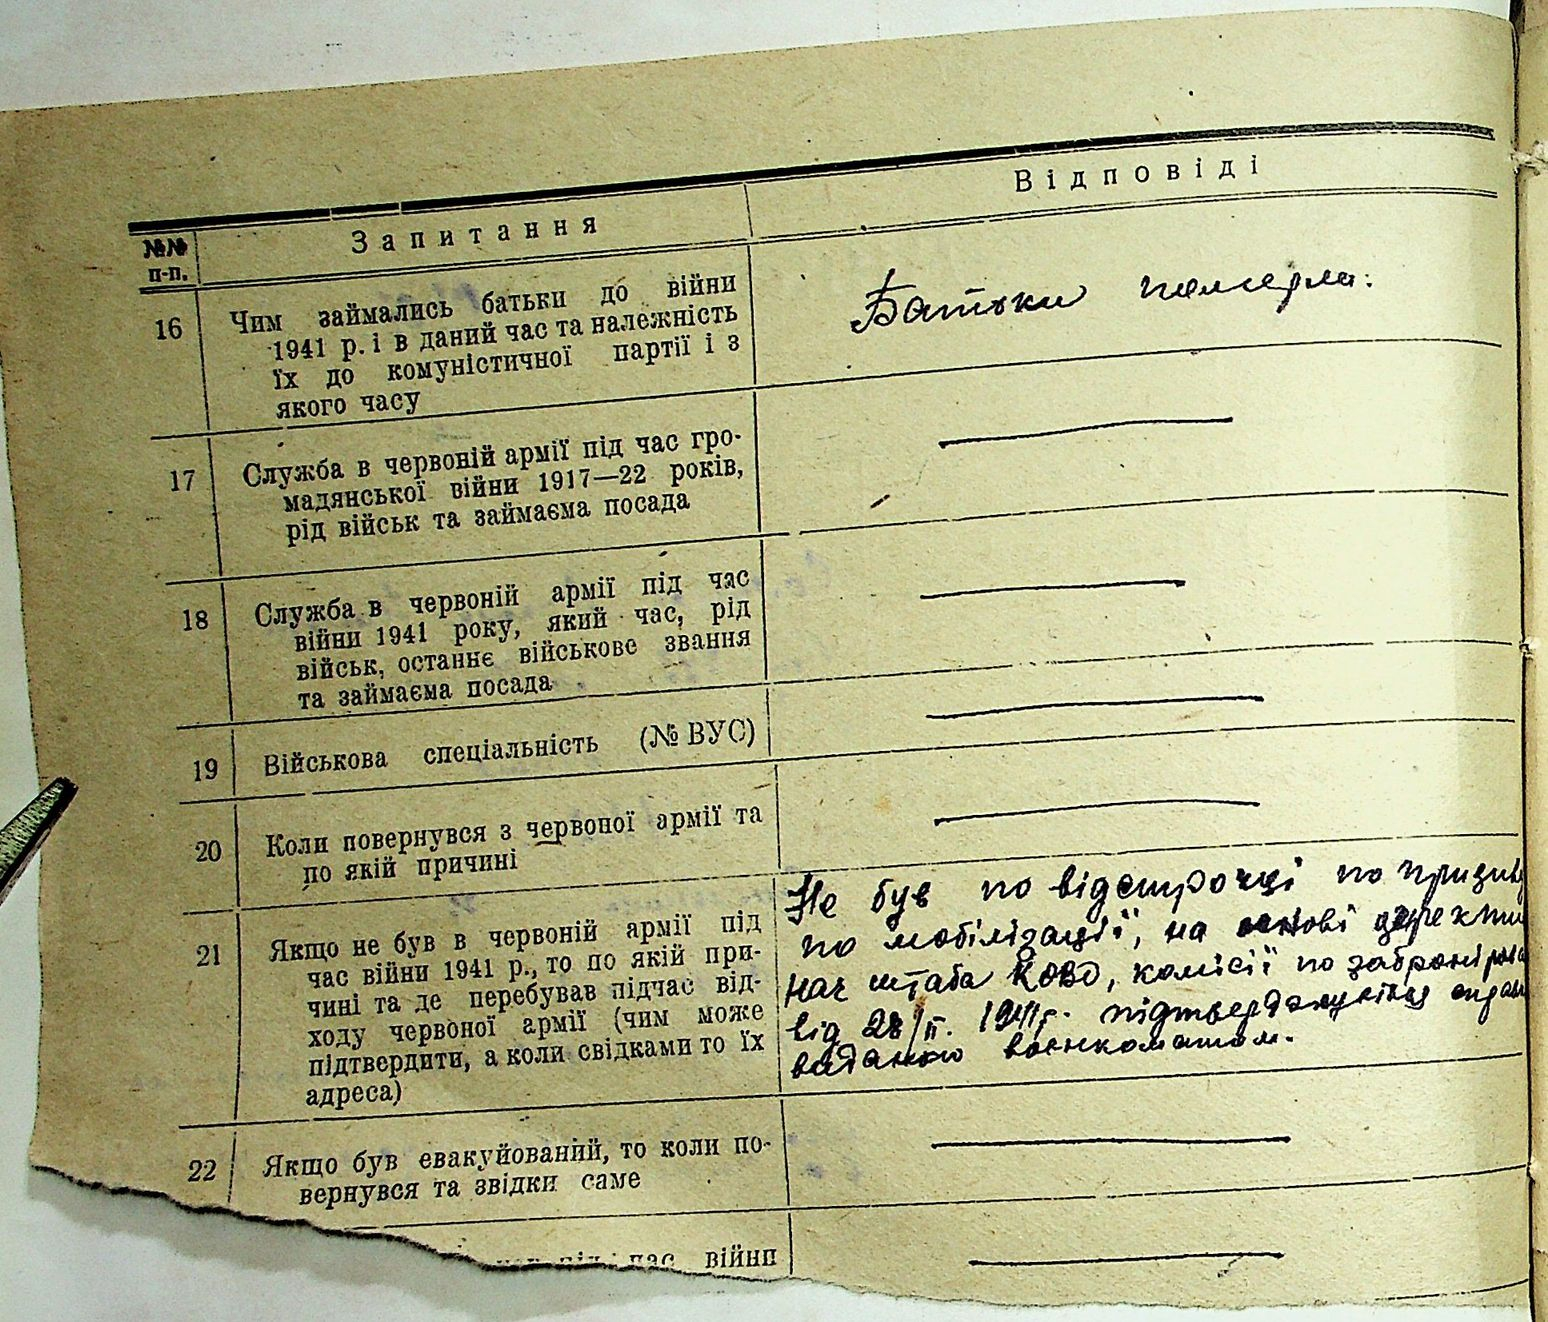 №№ п-п.
Запитання
Відповіді
16
Чим займались батьки до війни
1941 р. і в даний час та належність
їх до комуністичної партії і з
якого часу
Батьки померли.
17
Служба в червоній армії під час гро-
мадянської війни 1917—22 років,
рід військ та займаєма посада
18
Служба в червоній армії під час
війни 1941 року, який час, рід
військ, останнє військове звання
та займаєма посада
19
Військова спеціальність (№ ВУС)
20
Коли повернувся з червоної армії та
по якій причині
21
Якщо не був в червоній армії під
час війни 1941 р., то по якій при-
чині та де перебував підчас від-
ходу червоної армії (чим може
підтвердити, а коли свідками то їх
адреса)
Не був по відстрочці по призиву
по мобілізації, на основі
нач штаба КОВО, комісії по
від 28/II. 1941 г.
виданою военкоматом.
22
Якщо був евакуйований, то коли по-
вернувся та звідки саме
під час війни